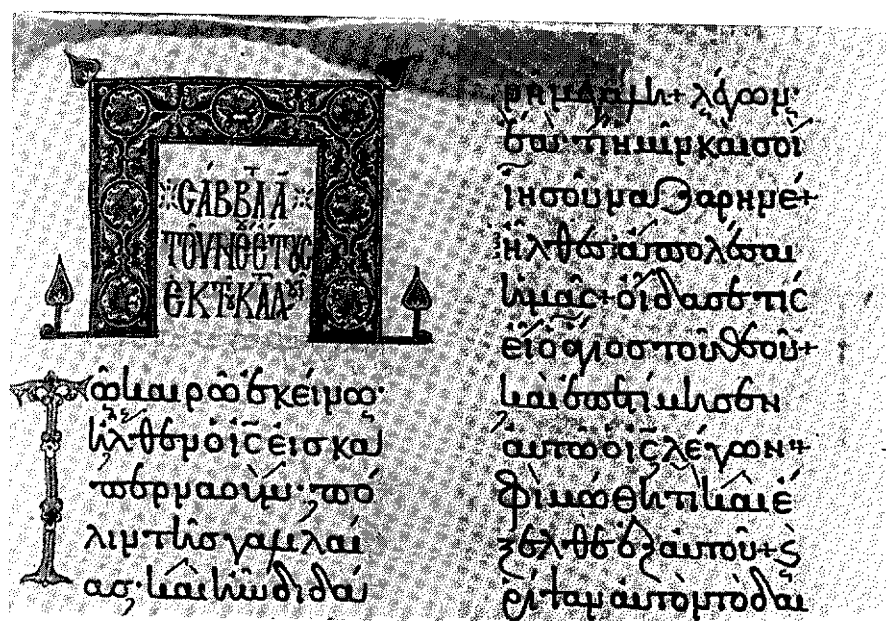 ϹΆΒΒΑ Α̅
ΤΟΥ͂ ΝΈΟΥ ἜΤΟΥϹ
ἘΚ ΤΟΥ ΚΑΤᾺ
Τῶ καιρῶ ἐκείνω·
ἦλθεν ὁ ἰ̅ς̅ εἰς κα
περναούμ· πό
λιν τῆς γαλιλαί
ας· καὶ ἦν διδά
νῆ μεγάλη+ λέγων·
ἔα· τί ἡμῖν καὶ σοὶ
ἰησοῦ ναζαρηνέ+
ἦλθες ἀπολέσαι
ἡμᾶς+ οἶδά σε τίς
εἶ ὁ ἅγιος τοῦ θεοῦ+
καὶ ἐπετίμησεν
αὐτῶ ὁ ἰ̅ς̅ λέγων+
φιμώθητι καὶ ἔ
ξελθε ἐξ αὐτοῦ+ ϗ
ῥίψαν αὐτὸν τὸ δαι